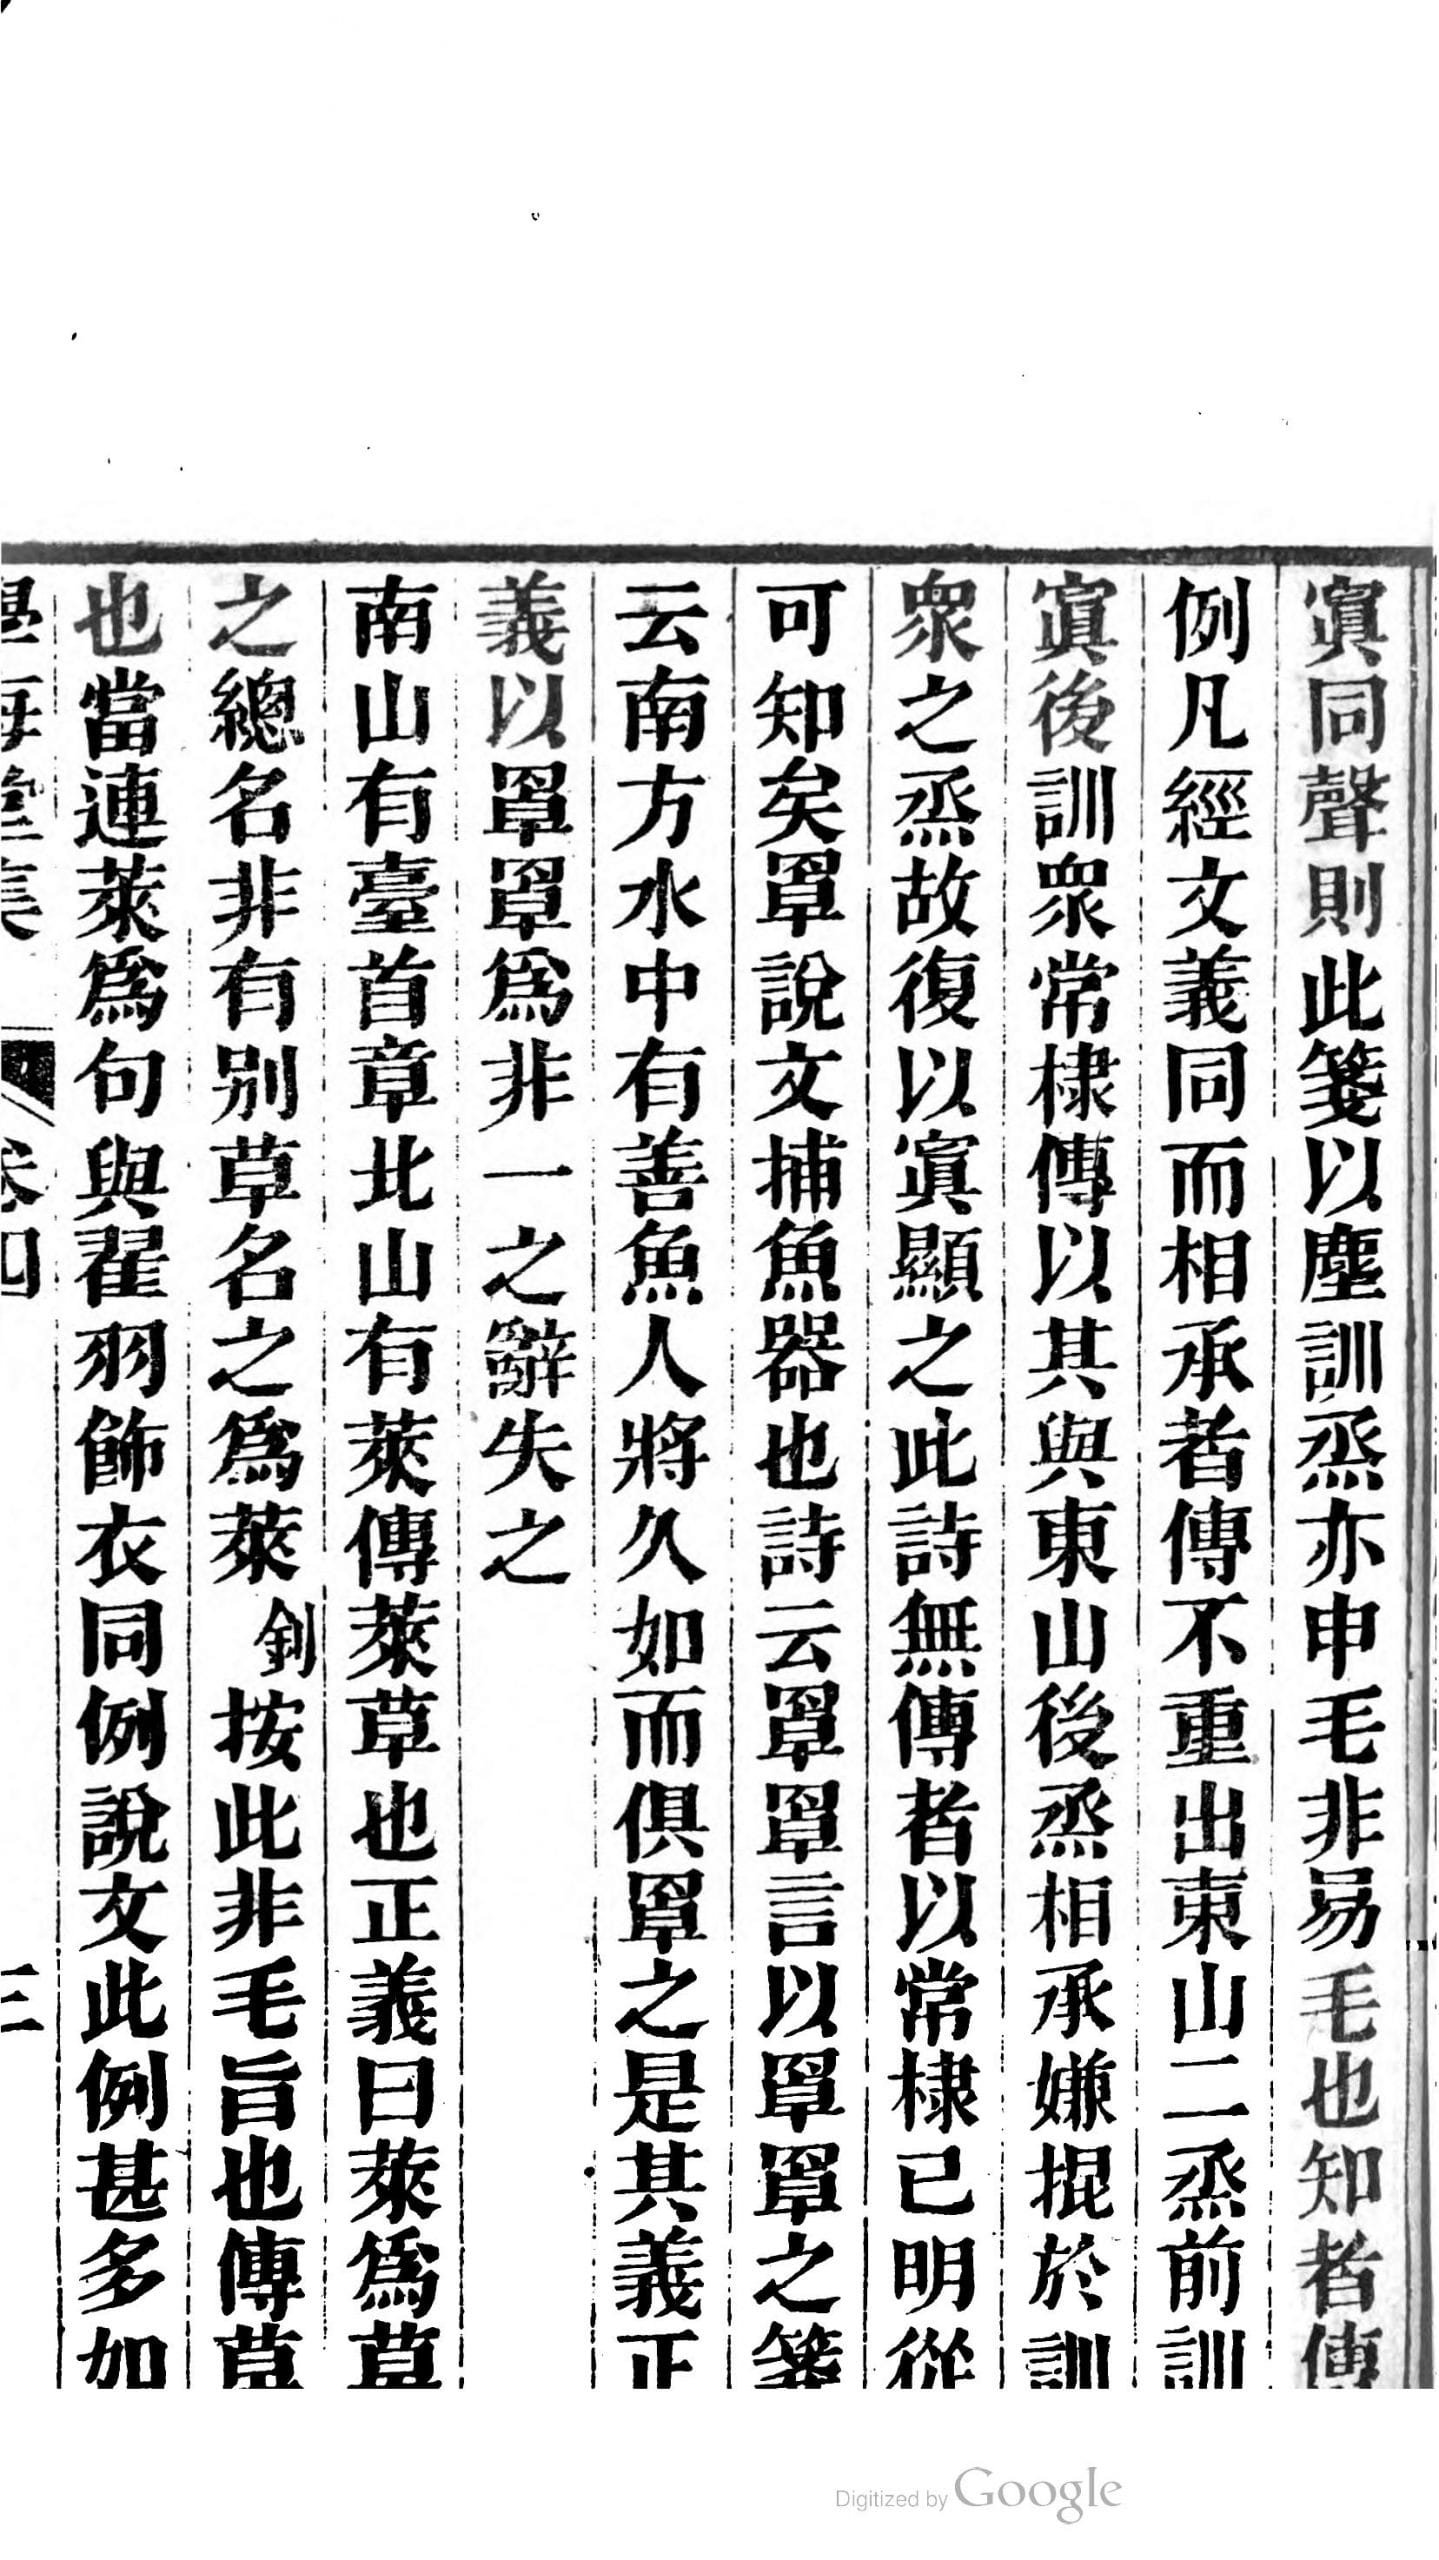 寘同聲則此箋以塵訓烝亦申毛非易毛也知者傳
例凡經文義同而相承者傳不重出東山二烝前訓
寘後訓眾常棣傳以其與東山後烝相承嫌掍於訓
眾之烝故復以寘顯之此詩無傳者以常棣已明從
可知矣罩說文捕魚器也詩云罩罩言以罩罩之箋
云南方水中有善魚人將久如而俱罩之是其義正
義以罩罩爲非一之辭失之
南山有臺首章北山有萊傳萊草也正義曰萊爲草
之總名非有别草名之爲萊釗按此非毛旨也傳草
也當連萊爲句與翟羽飾衣同例說文此例甚多如
學海堂集 卷四 三
Digitized by Google